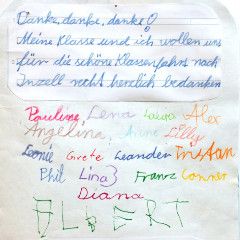 Danke, danke, danke!
Meine Klasse und ich wollen uns
für die schöne Klassenfahrt nach
Inzell recht herzlich bedanken
Pauline, Lena Laura Alex
Angelina Lilly
Leonie Grete Leander Tristan
Phil Lina3 Franz Connor
Diana
ALBERT